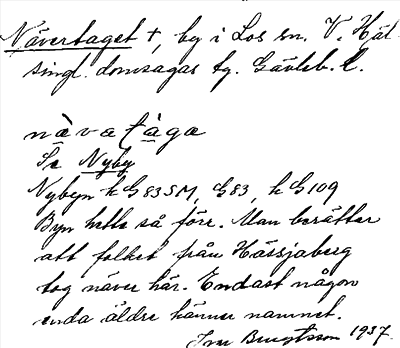 Nävertaget †, by i Los sn. V. Häl-
singl. domsagas tg. Gävleb. l.
nàvatàga
Se Nyby
Nybyn k G 83 SM, G 83, k G 109
Byn hette så förr. Man berättar
att folket från Hässjaberg
tog näver här. Endast någon
enda äldre känner namnet.
Ivar Bengtsson 1937.